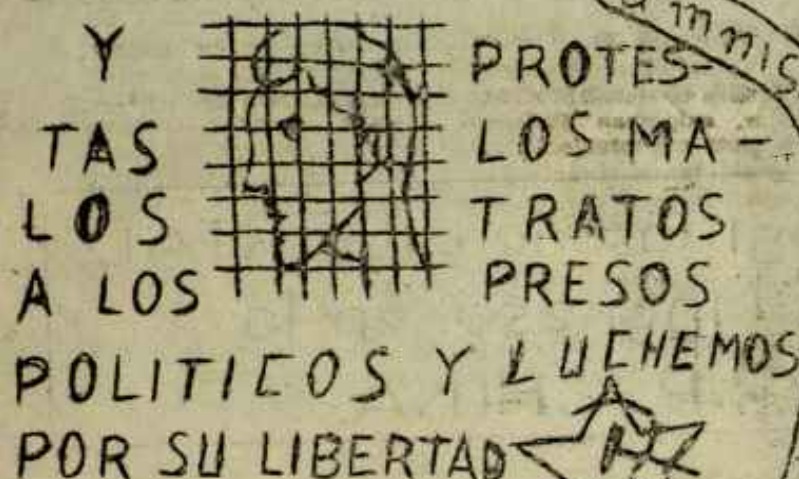 amnis
Y PROTES-
TAS LOS MA-
LOS TRATOS
A LOS PRESOS
POLITICOS Y LUCHEMOS
POR SU LIBERTAD